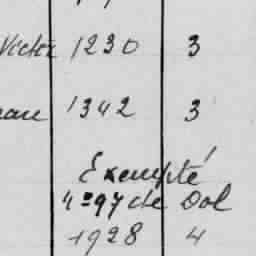 Victor 1230 3
1342 3
Exempté
4 = 97 de Dol
1928 4